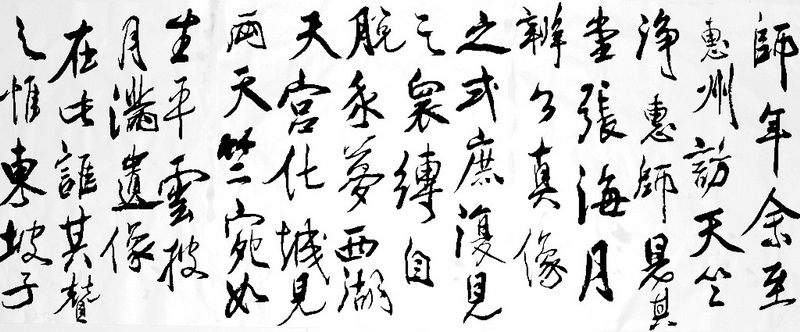 師年余至
惠州訪天竺
淨惠師見其
堂張海月
辯公真像
之式庶復見
之眾縛自
脫我夢西湖
天宮化城見
兩天竺宛如
生平雲披
月滿遺像
在此誰其贊
之惟東坡子